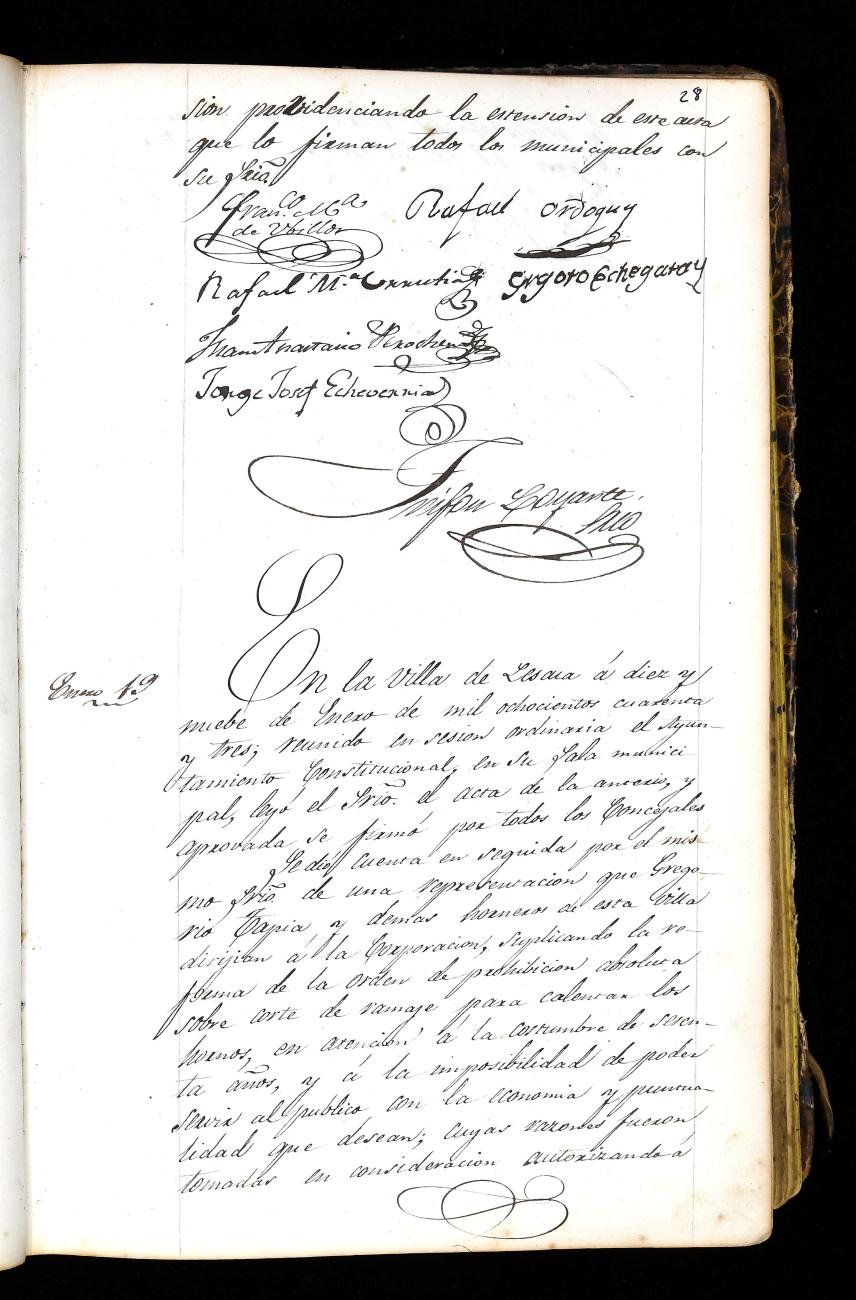 28
sion providenciando la estension de este acta
que lo firman todos los municipales con
su Srio.
Fran.co M.a
de Ubillos
Rafael Ordoquy
Rafael M.a Urrutia
Grgoro Echegaray
Juan Anastasio
Jorge Josef Echeverria
Trifon Loyarte.
Srio
Enero 19
En la villa de Lesaca á diez y
nuebe de Enero de mil ochocientos cuarenta
y tres; reunido en sesion ordinaria el Ayun-
tamiento Constitucional, en su Sala munici
pal, leyó el Srio. el acta de la anterior, y
aprovada se firmó por todos los Concejales
Se dió cuenta en seguida por el mis-
mo Srio. de una representacion que Grego-
rio Tapia, y demas horneros de esta villa
dirijian á la Corporacion, suplicando la re-
forma de la orden de prohibicion absoluta
sobre corte de ramaje para calentar los
hornos, en atencion á la costumbre de sesen-
ta años, y á la imposibilidad de poder
servir al publico con la economia y puntua-
lidad que désean; cuyas razones fueron
tomadas en consideracion autorizando á